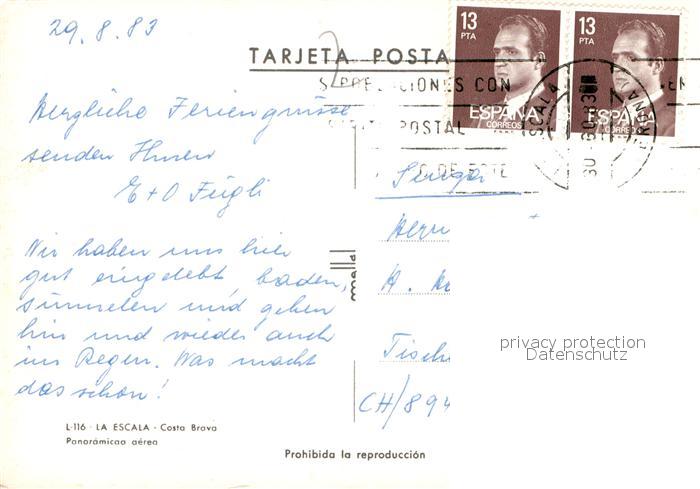 29.8.83
TARJETA POSTA
13
PTA
ESPAÑA
CORREOS
13
PTA
ESPAÑA
CORREOS
CON
POSTAL
DE ESTE
ESCALA
30
83
Herzliche Feriengrüsse
senden Ihnen
E + O Fügli
Wir haben uns hier
gut eingelebt, baden,
sünnelen und gehen
hin und wieder auch
im Regen. Was macht
das schon!
Herrn
Tisch
CH/894
privacy protection
Datenschutz
L-116 - LA ESCALA - Costa Brava
Panorámicao aérea
Prohibida la reproducción